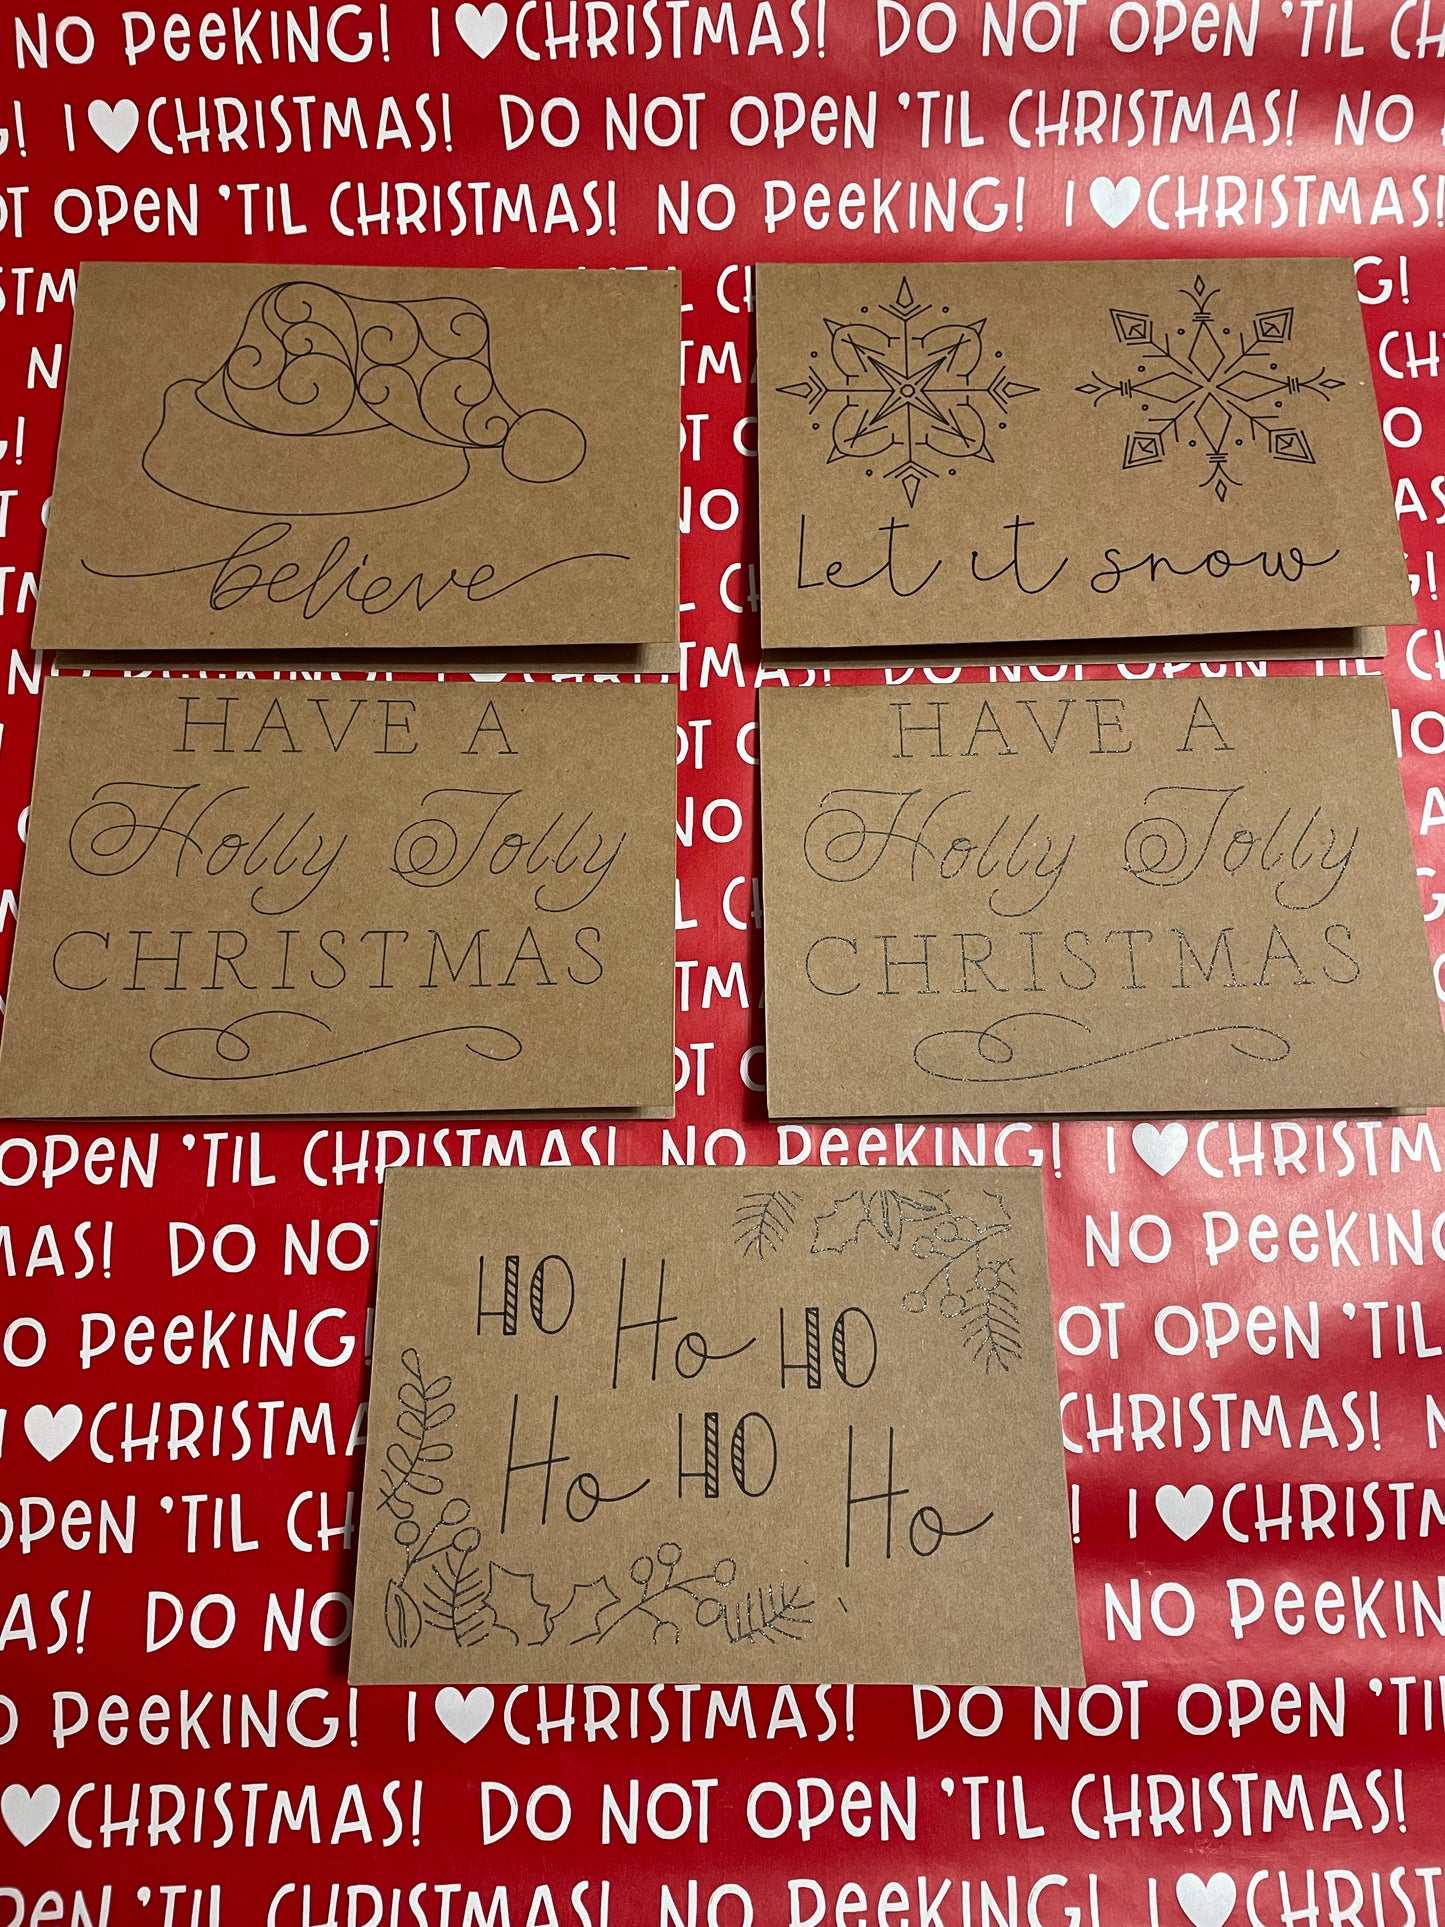 NO PeeKING! I ♥ CHRISTMAS! DO NOT OPeN 'TIL CH
G! I ♥ CHRISTMAS! DO NOT OPeN 'TIL CHRISTMAS! NO
OT OPeN 'TIL CHRISTMAS! NO PeeKING! I ♥ CHRISTMAS!
believe
Let it snow
HAVE A
Holly Jolly
CHRISTMAS
HAVE A
Holly Jolly
CHRISTMAS
OPeN 'TIL CHRISTMAS! NO PeeKING! I ♥ CHRISTM
MAS! DO NO
NO PeeKIN
O PeeKING!
OT OPeN 'TIL
I ♥ CHRISTMA
CHRISTMAS! N
OPeN 'TIL CH
! I ♥ CHRISTM
AS! DO NO
NO PeeKIN
HO Ho HO
Ho HO Ho
O PeeKING! I ♥ CHRISTMAS! DO NOT OPeN 'TI
♥ CHRISTMAS! DO NOT OPeN 'TIL CHRISTMAS!
OPeN 'TIL CHRISTMAS! NO PeeKING! I ♥ CHRISTMAS